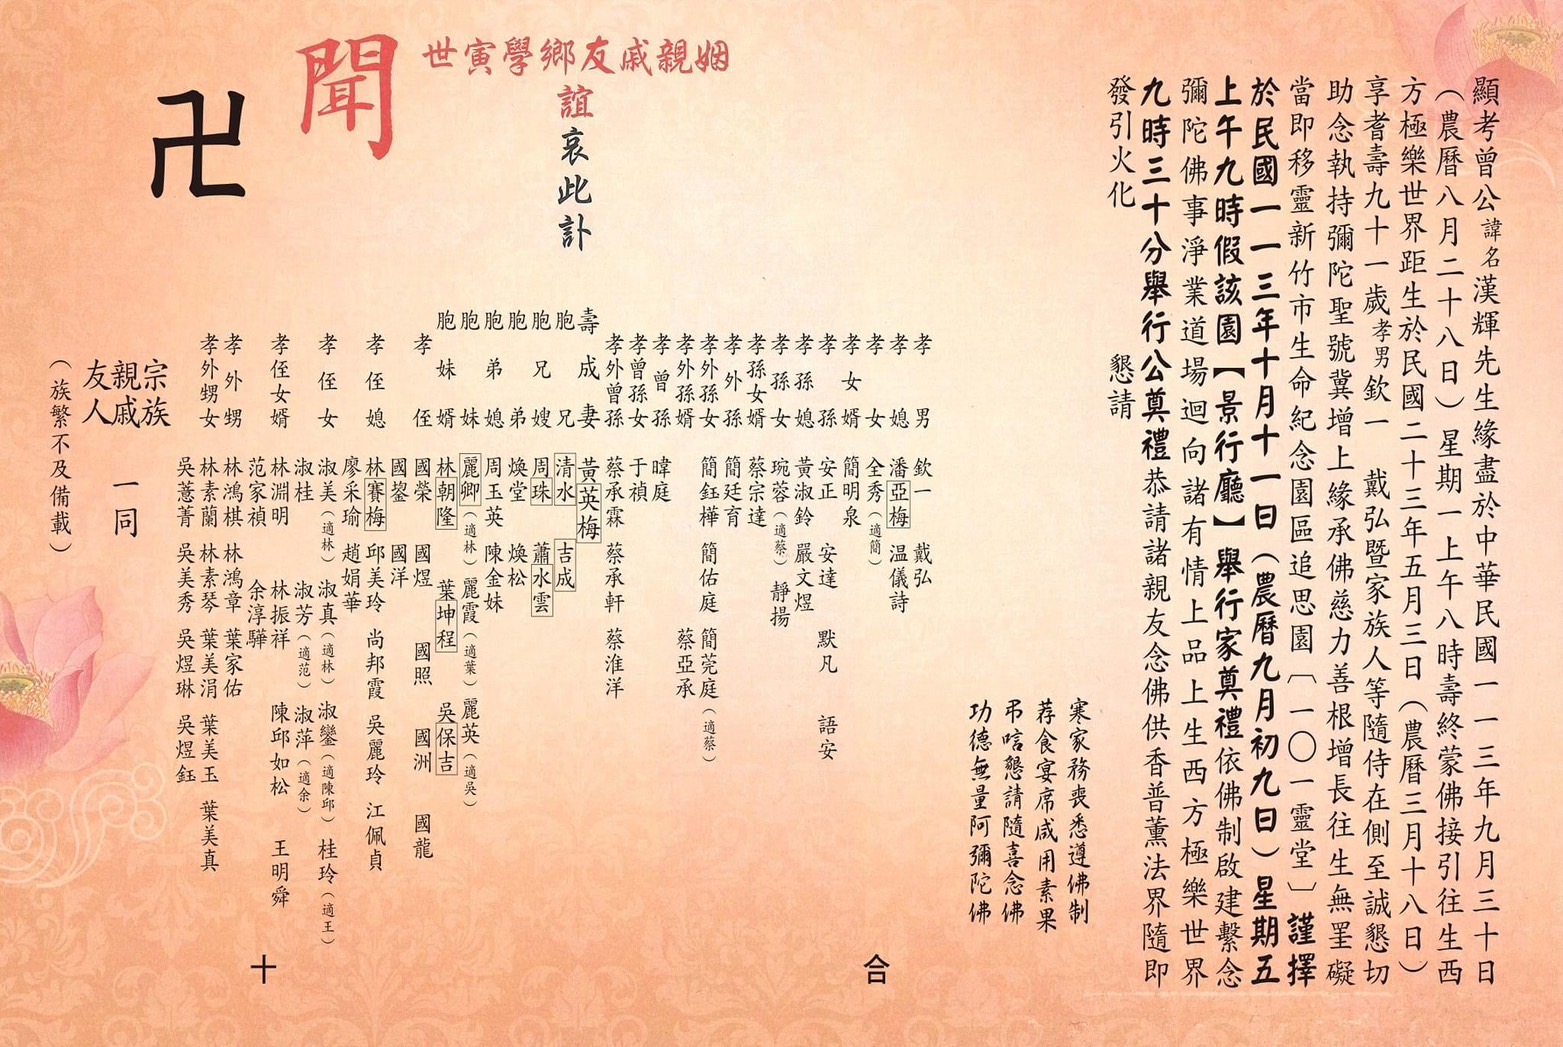 顯考曾公諱名漢輝先生緣盡於中華民國一一三年九月三十日
（農曆八月二十八日）星期一上午八時壽終蒙佛接引往生西
方極樂世界距生於民國二十三年五月三日（農曆三月十八日）
享耆壽九十一歲孝男欽一　戴弘暨家族人等隨侍在側至誠懇切
助念執持彌陀聖號冀增上緣承佛慈力善根增長往生無罣礙
當即移靈新竹市生命紀念園區追思園〔一〇一靈堂〕謹擇
於民國一一三年十月十一日（農曆九月初九日）星期五
上午九時假該園【景行廳】舉行家奠禮依佛制啟建繫念
彌陀佛事淨業道場迴向諸有情上品上生西方極樂世界
九時三十分舉行公奠禮恭請諸親友念佛供香普薰法界隨即
發引火化　　　懇請
寒家務喪悉遵佛制
荐食宴席咸用素果
弔唁懇請隨喜念佛
功德無量阿彌陀佛
孝男　欽一　戴弘
孝媳　潘亞梅　温儀詩
孝女　全秀（適簡）
孝女婿　簡明泉
孝孫　安正　安達　默凡　語安
孝孫媳　黃淑鈴　嚴文煜
孝孫女　琬蓉（適蔡）　靜揚
孝孫女婿　蔡宗達
孝外孫　簡廷育
孝外孫女　簡鈺樺　簡佑庭　簡莞庭（適蔡）
孝外孫婿　蔡亞承
孝曾孫　暐庭
孝曾孫女　于禎
孝外曾孫　蔡承霖　蔡承軒　蔡淮洋
壽成妻　黃英梅
胞兄　清水　吉成
胞兄嫂　周珠　蕭水雲
胞弟　煥堂　煥松
胞弟媳　周玉英　陳金妹
胞妹　麗卿（適林）　麗霞（適葉）　麗英（適吳）
胞妹婿　林朝隆　葉坤程　吳保吉
孝侄　國榮　國煜　國照　國洲　國龍
國鋆　國洋
孝侄媳　林賽梅　邱美玲　尚邦霞　吳麗玲　江佩貞
廖采瑜　趙娟華
孝侄女　淑美（適林）　淑真（適林）　淑鑾（適陳邱）　桂玲（適王）
淑桂　淑芳（適范）　淑萍（適余）
孝侄女婿　林淵明　林振祥　陳邱如松　王明舜
范家禎　余淳驊
孝外甥　林鴻棋　林鴻章　葉家佑
孝外甥女　林素蘭　林素琴　葉美涓　葉美玉　葉美真
吳薏菁　吳美秀　吳煜琳　吳煜鈺
宗族
親戚　一同
友人
（族繁不及備載）
合十
姻親戚友鄉學寅世
誼哀此訃
聞
卍